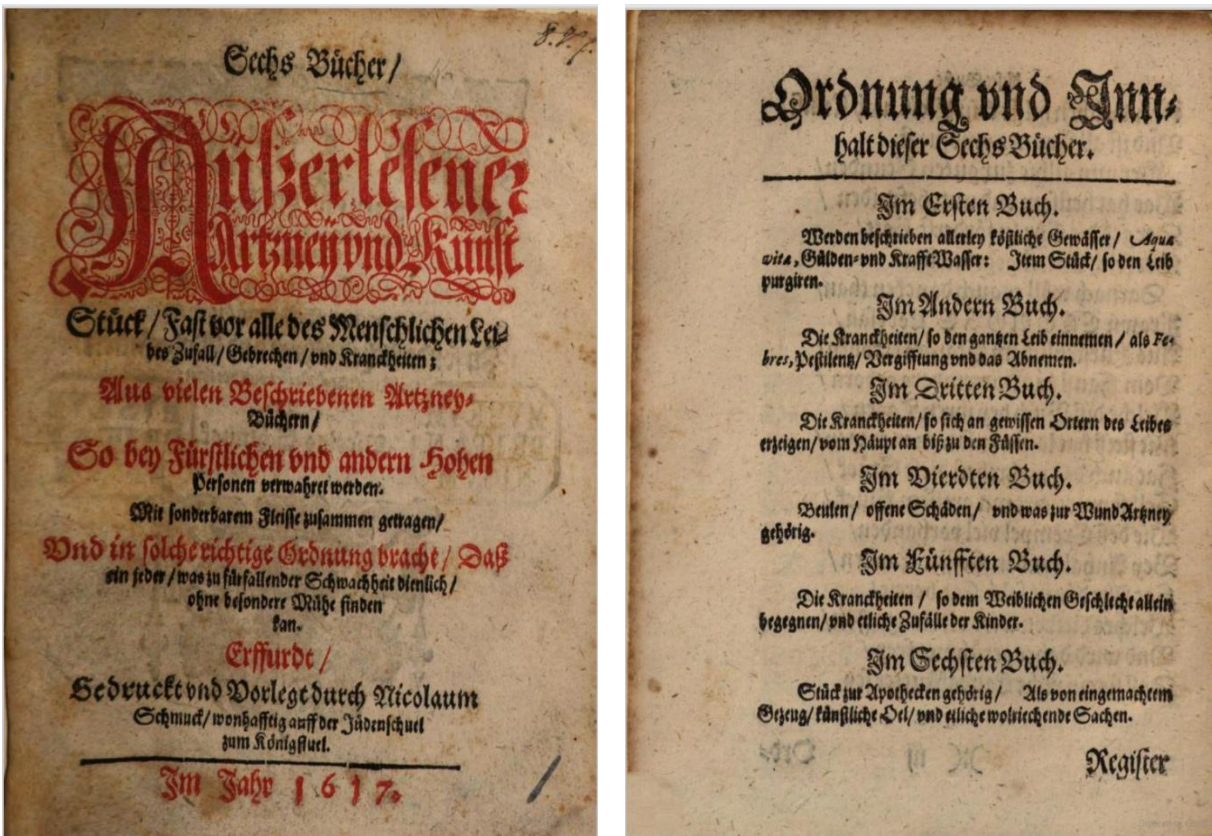 Sechs Bücher/
Außerlesener
Artzney vnd Kunst
Stück/Fast vor alle des Menschlichen Lei-
bes Zufall/Gebrechen/vnd Kranckheiten;
Aus vielen Beschriebenen Artzney-
Büchern/
So bey Fürstlichen vnd andern Hohen
Personen verwahret werden.
Mit sonderbarem Fleisse zusammen getragen/
Vnd in solche richtige Ordnung bracht/ Daß
ein jeder/was zu fürfallender Schwachheit dienlich/
ohne besondere Mühe finden
kan.
Erffurdt/
Gedruckt vnd Vorlegt durch Nicolaum
Schmuck/wonhafftig auff der Jüdenschuel
zum Königstuel.
Im Jahr 1617.
Ordnung vnd Inn-
halt dieser Sechs Bücher.
Im Ersten Buch.
Werden beschrieben allerley köstliche Gewässer/ Aqua
vitæ, Gülden- vnd Krafft Wasser: Item Stück/ so den Leib
purgiren.
Im Andern Buch.
Die Kranckheiten/ so den gantzen Leib einnemen/ als Fe-
bres, Pestilentz/ Vergifftung vnd das Abnemen.
Im Dritten Buch.
Die Kranckheiten/ so sich an gewissen Ortern des Leibes
erzeigen/ vom Häupt an biß zu den Füssen.
Im Vierdten Buch.
Beulen/ offene Schäden/ vnd was zur Wund Artzney
gehörig.
Im Fünfften Buch.
Die Kranckheiten / so dem Weiblichen Geschlecht allein
begegnen/ vnd etliche Zufälle der Kinder.
Im Sechsten Buch.
Stück zur Apothecken gehörig/ Als von eingemachtem
Gezeug/ künstliche Oel/ vnd etliche wolriechende Sachen.
Register